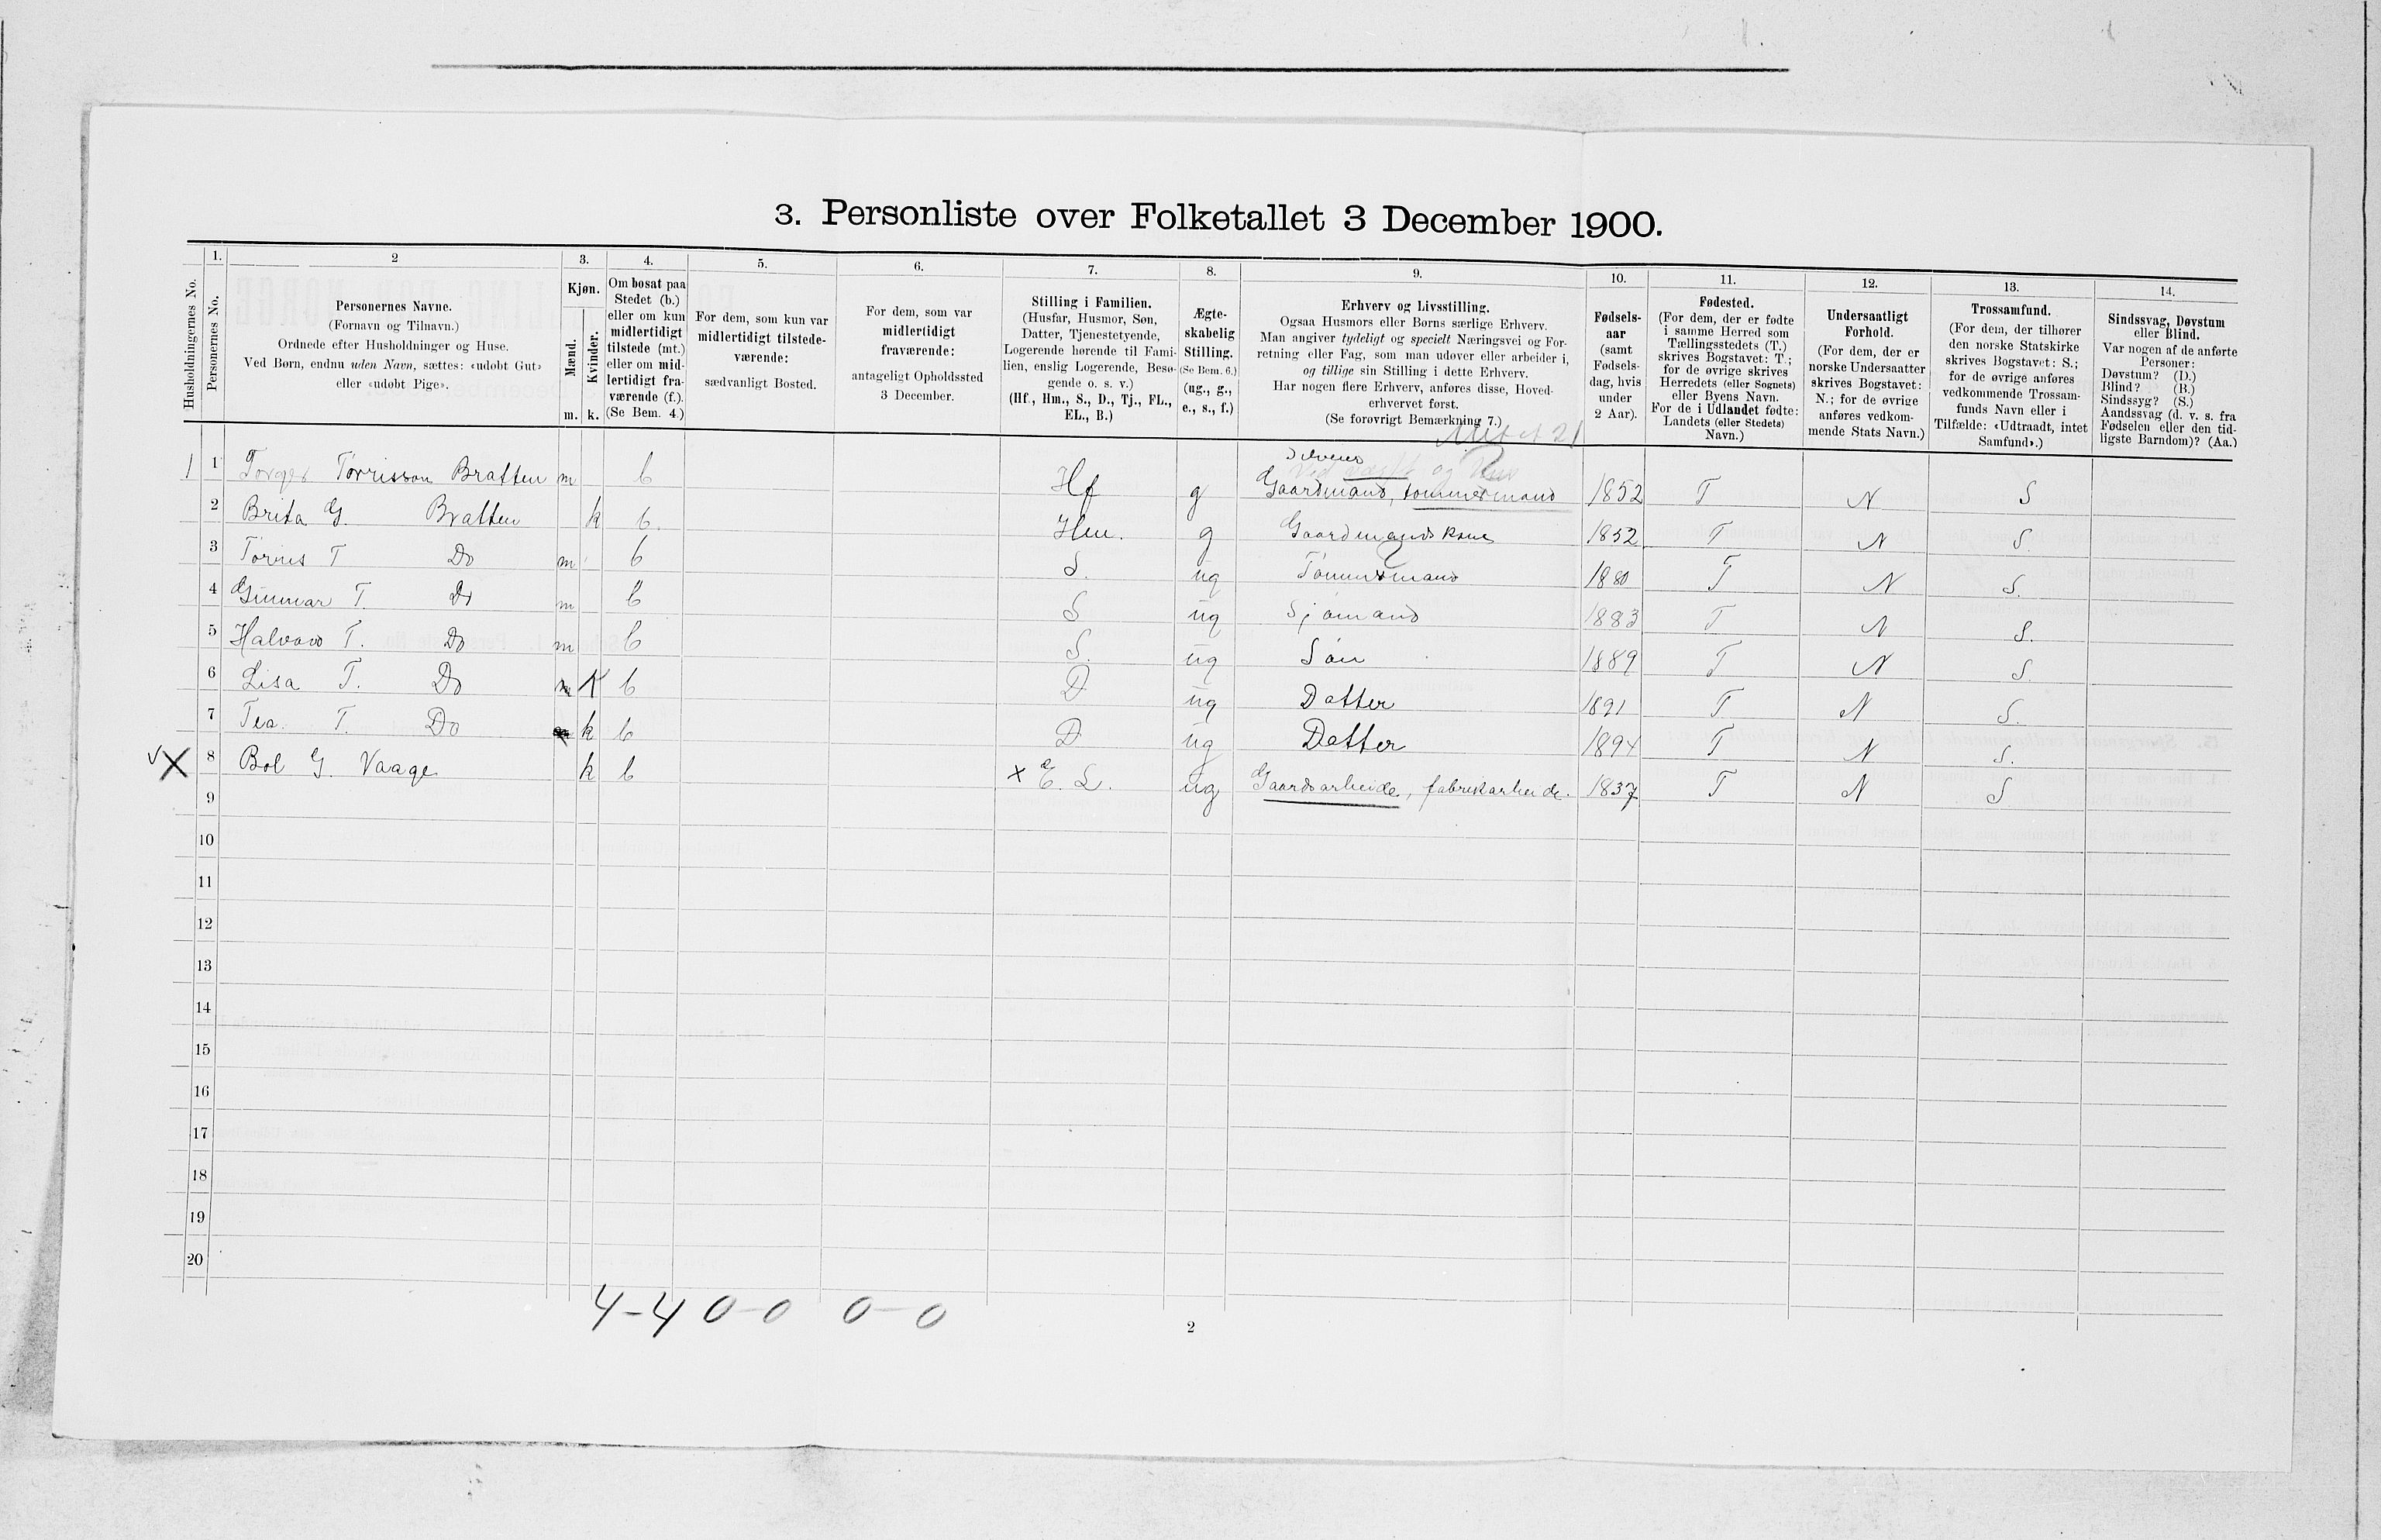 3. Personliste over Folketallet 3 December 1900.
Husholdningernes No.
1.
Personernes No.
2
Personernes Navne.
(Fornavn og Tilnavn.)
Ordnede efter Husholdninger og Huse.
Ved Børn, endnu uden Navn, sættes: «udøbt Gut»
eller «udøbt Pige».
3.
Kjøn.
Mænd.
Kvinder.
m. k.
4.
Om bosat paa
Stedet (b.)
eller om kun
midlertidigt
tilstede (mt.)
eller om mid-
lertidigt fra-
værende (f.).
(Se Bem. 4.)
5.
For dem, som kun var
midlertidigt tilstede-
værende:
sædvanligt Bosted.
6.
For dem, som var
midlertidigt
fraværende:
antageligt Opholdssted
3 December.
7.
Stilling i Familien.
(Husfar, Husmor, Søn,
Datter, Tjenestetyende,
Logerende hørende til Fami-
lien, enslig Logerende, Besø-
gende o. s. v.)
(Hf., Hm., S., D., Tj., FL.,
EL., B.)
8.
Ægte-
skabelig
Stilling.
(Se Bem. 6.)
(ug., g.,
e., s., f.)
9.
Erhverv og Livsstilling.
Ogsaa Husmors eller Børns særlige Erhverv.
Man angiver tydeligt og specielt Næringsvei og For-
retning eller Fag, som man udøver eller arbeider i,
og tillige sin Stilling i dette Erhverv.
Har nogen flere Erhverv, anføres disse, Hoved-
erhvervet først.
(Se forøvrigt Bemærkning 7.)
10.
Fødsels-
aar
(samt
Fødsels-
dag, hvis
under
2 Aar).
11.
Fødested.
(For dem, der er fødte
i samme Herred som
Tællingsstedets (T.)
skrives Bogstavet: T.;
for de øvrige skrives
Herredets (eller Sognets)
eller Byens Navn.
For de i Udlandet fødte:
Landets (eller Stedets)
Navn.)
12.
Undersaatligt
Forhold.
(For dem, der er
norske Undersaatter
skrives Bogstavet:
N.; for de øvrige
anføres vedkom-
mende Stats Navn.)
13.
Trossamfund.
(For dem, der tilhører
den norske Statskirke
skrives Bogstavet: S.;
for de øvrige anføres
vedkommende Trossam-
funds Navn eller i
Tilfælde: «Udtraadt, intet
Samfund».)
14.
Sindssvag, Døvstum
eller Blind.
Var nogen af de anførte
Personer:
Døvstum? (D.)
Blind? (B.)
Sindssyg? (S.)
Aandssvag (d. v. s. fra
Fødselen eller den tid-
ligste Barndom)? (Aa.)
Selveier
1 1 Torger Torrisson Bratten m b Hf g Gaardmand, tømmermand 1852 T N S
2 Brita G. Bratten k b. Hm. g Gaardmandskone 1852 T N S.
3 Torris T Do m b S. ug Tømmermand 1880 T N S.
4 Gunnar T. Do m b S ug Sjømand 1883 T N S.
5 Halvard T. Do m b S. ug Søn 1889 T N S.
6 Lisa T. Do K b D ug Datter 1891 T N S.
7 Tea T. Do k b D ug Datter 1894 T N S.
X 8 Bol G. Vaage k b x E. L. ug Gaardsarbeide, fabrikarbeide. 1837 T N S
9
10
11
12
13
14
15
16
17
18
19
20
4-4 0-0 0-0
2